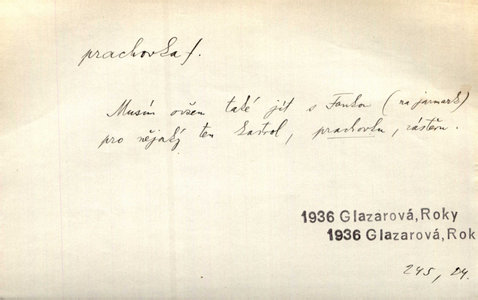 prachovka f.
Musím ovšem také jít s Fankou (na jarmark)
pro nějaký ten kastrol, prachovku, zástěru.
1936 Glazarová, Roky
1936 Glazarová, Rok
245, 24.